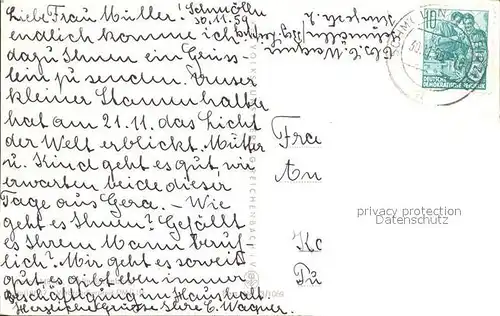 Liebe Frau Müller! Schmölln
30.11.59
endlich komme ich
dazu Ihnen ein Grüss-
lein zu senden. Unser
kleiner Stammhalter
hat am 21.11. das Licht
der Welt erblickt. Mutter
u. Kind geht es gut, wir
erwarten beide dieser
Tage aus Gera. – Wie
geht es Ihnen? Gefällt
es Ihrem Mann beruf-
lich? Mir geht es soweit
gut, es gibt eben immer
Beschäftigung im Haushalt.
Herzliche Grüsse Ihre E. Wagner.
Wagner
Schmölln
SCHMÖLLN
10
DEUTSCHE
DEMOKRATISCHE REPUBLIK
REICHENBACH I. V.
Fra
An
privacy protection
Datenschutz